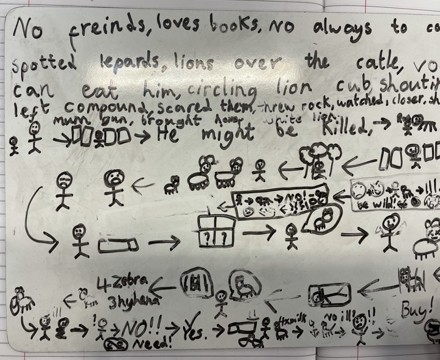 No freinds, loves books, no always to co
spotted lepards, lions over the catle, vo
can eat him, circling lion cub, shoutin
left compound, scared them, threw rock, watched, closer, sh
mum gun, brought home, white lion
He might be killed,
NO!
!!!
be wild!
? ?
4 zebra
3 hyhena
Buy!
! NO!! Yes. 4x milk no ill! !!
Need!